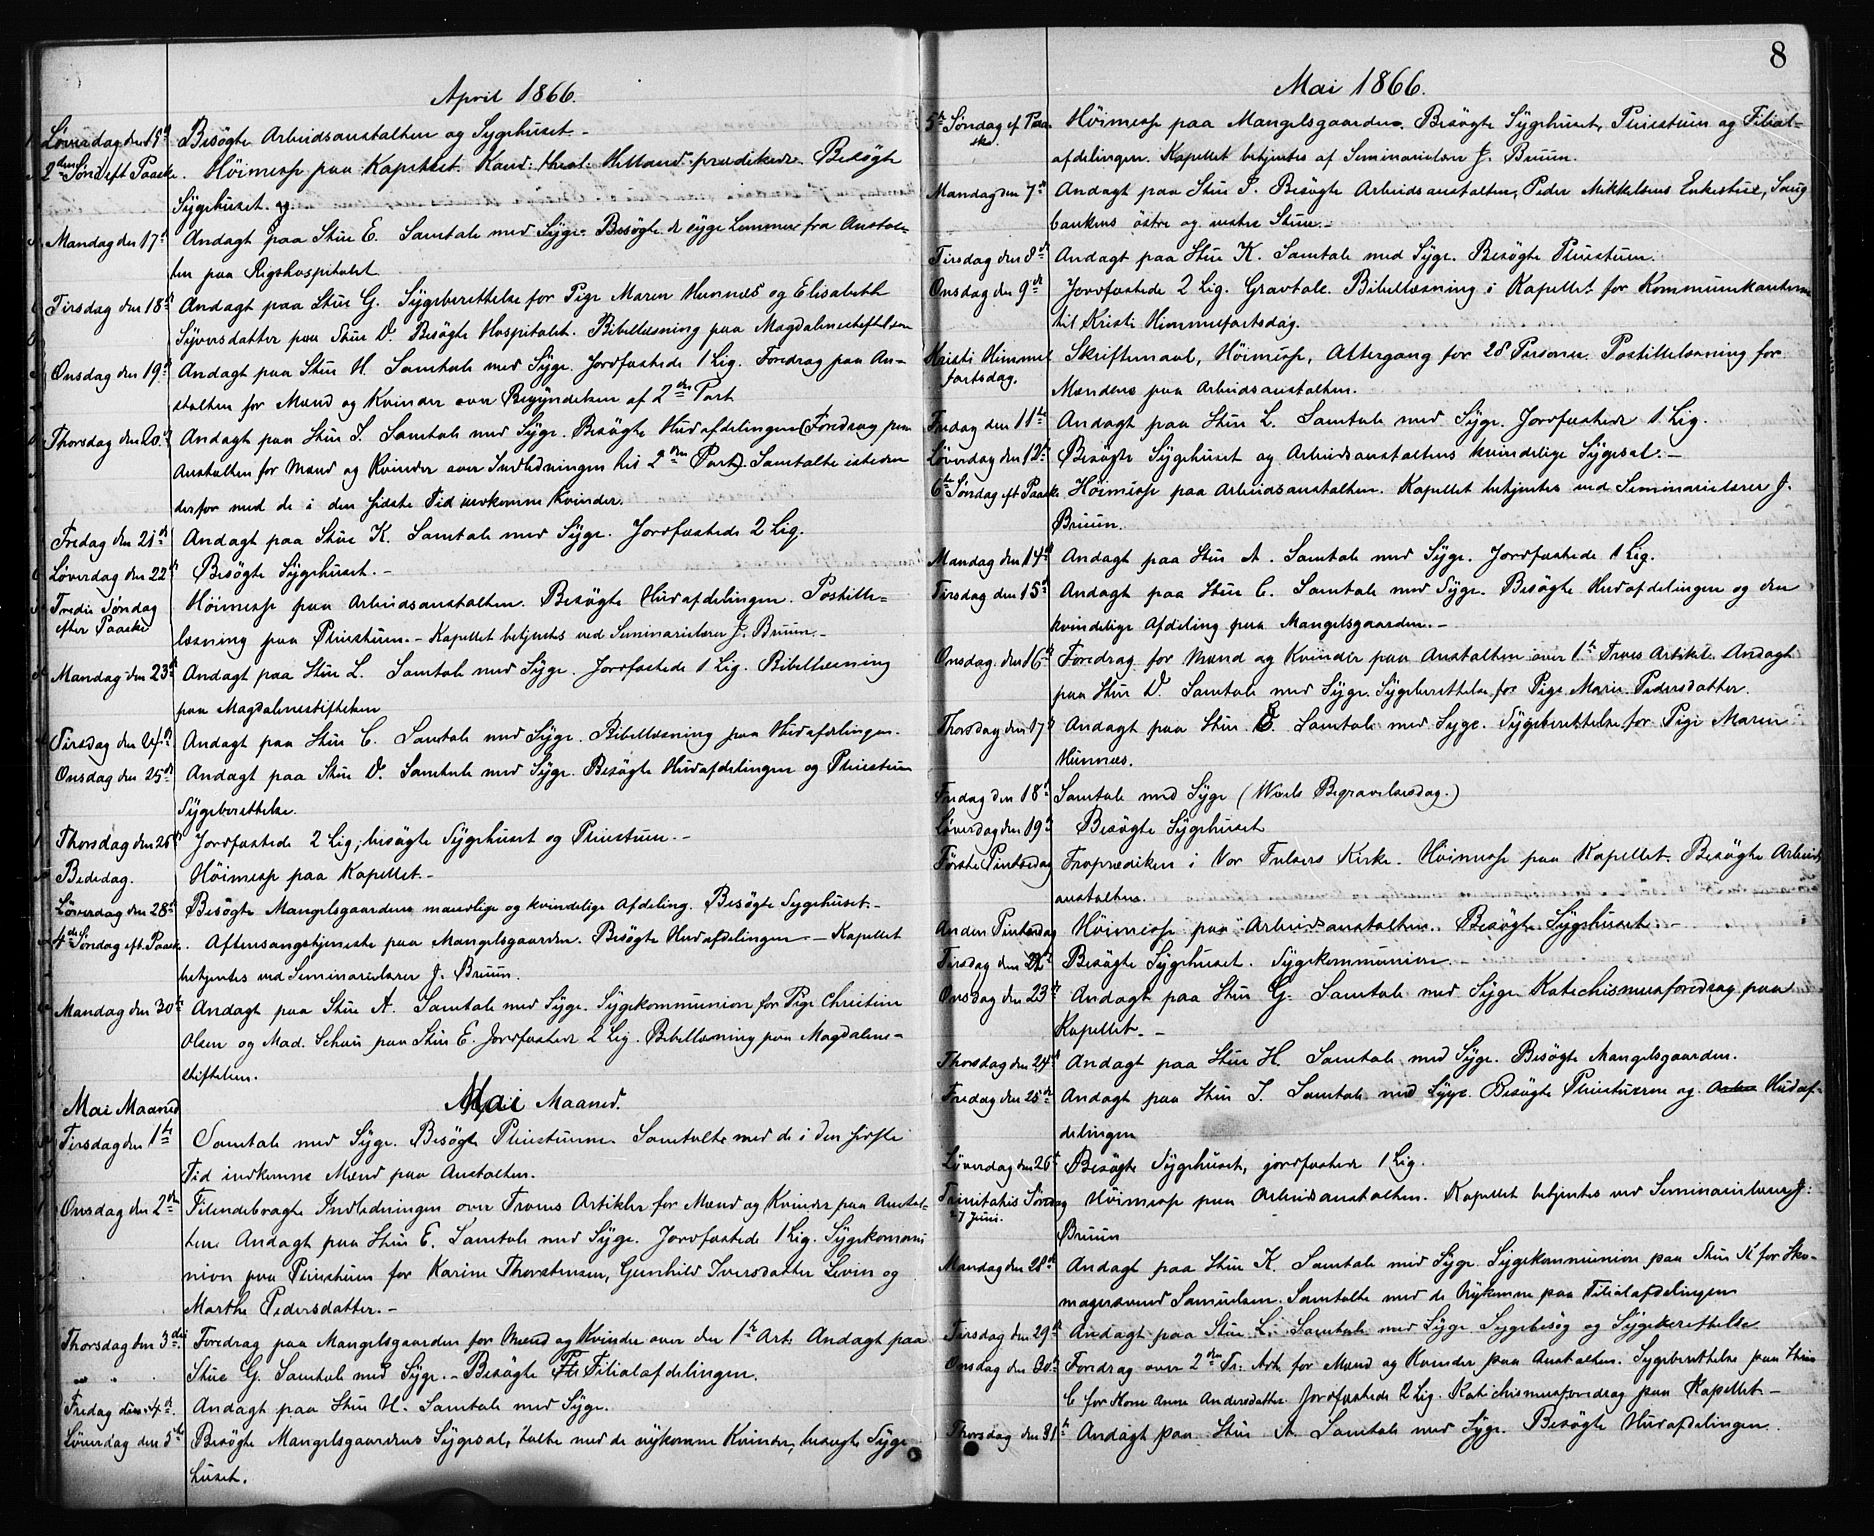 April 1866.
Løverdag den 15de Besøgte Arbeidsanstalten og Sygehuset. -
2den Sønd. eft. Paaske. Høimesse paa Kapellet. Kand. theol. Helland prædikede. Besøgte
Sygehuset.
Mandag den 17de Andagt paa Stue E. Samtale med Syge. Besøgte de syge Lemmer fra Anstal-
ten paa Rigshospitalet
Tirsdag den 18de Andagt paa Stue G. Sygeberettelse for Pige Maren Hennæs og Elisabeth
Syversdatter paa Stue D. Besøgte Hospitalet. Bibellæsning paa Magdalenestiftelsen
Onsdag den 19de Andagt paa Stue H. Samtale med Syge. Jordfæstede 1 Lig. Foredrag paa An-
stalten for Mænd og Kvinder over Begyndelsen af 2den Part
Thorsdag den 20de Andagt paa Stue I. Samtale med Syge. Besøgte Hudafdelingen (Foredrag paa
Anstalten for Mænd og Kvinder over Indledningen til 2den Part). Samtalte isteden
derfor med de i den sidste Tid indkomne Kvinder.
Fredag den 21de Andagt paa Stue K. Samtale med Syge. Jordfæstede 2 Lig.
Løverdag den 22de Besøgte Sygehuset. -
Tredie Søndag efter Paaske Høimesse paa Arbeidsanstalten. Besøgte Hudafdelingen. Postille-
læsning paa Pleiestuen. - Kapellet betjentes ved Seminarielærer J. Bruun. -
Mandag den 23de Andagt paa Stue L. Samtale med Syge. Jordfæstede 1 Lig. Bibellæsning
paa Magdalenestiftelsen
Tirsdag den 24de Andagt paa Stue C. Samtale med Syge. Bibellæsning paa Hudafdelingen.
Onsdag den 25de Andagt paa Stue D. Samtale med Syge. Besøgte Hudafdelingen og Pleiestuen
Sygeberettelse.
Thorsdag den 26de Jordfæstede 2 Lig; besøgte Sygehuset og Pleiestuen. -
Bededag. Høimesse paa Kapellet. -
Løverdag den 28de Besøgte Mangelsgaardens mandlige og kvindelige Afdeling. Besøgte Sygehuset. -
4de Søndag eft. Paaske. Aftensangstjeneste paa Mangelsgaarden. Besøgte Hudafdelingen. - Kapellet
betjentes ved Seminarielærer J. Bruun.
Mandag den 30te Andagt paa Stue A. Samtale med Syge. Sygekommunion for Pige Christine
Olsen og Mad. Schau paa Stue E. Jordfæstede 2 Lig. Bibellæsning paa Magdalene-
stiftelsen.
Mai Maaned Mai Maaned.
Tirsdag den 1te Samtale med Syge. Besøgte Pleiestuerne. Samtalte med de i den sidste
Tid indkomne Mænd paa Anstalten.
Onsdag den 2den Tilendebragte Indledningen over Troens Artikler for Mænd og Kvinder paa Anstal-
ten. Andagt paa Stue E. Samtale med Syge. Jordfæstede 1 Lig. Sygekommu
nion paa Pleiestuen for Karine Thorstensen, Gunhild Iversdatter Levin og
Marthe Pedersdatter. -
Thorsdag den 3die Foredrag paa Mangelsgaarden for Mænd og Kvinder over den 1te Art. Andagt paa
Stue G. Samtale med Syge. - Besøgte Filialafdelingen.
Fredag den 4de. Andagt paa Stue H. Samtale med Syge.
Løverdag den 5te Besøgte Mangelsgaardens Sygesal, talte med de nykomne Kvinder, besøgte Syge
huset.
8
Mai 1866.
5te Søndag ef. Paaske. Høimesse paa Mangelsgaarden. Besøgte Sygehuset, Pleiestuen og Filial-
afdelingen. Kapellet betjentes af Seminarielærer J. Bruun.
Mandag den 7de Andagt paa Stue I. Besøgte Arbeidsanstalten, Peder Mikkelsens Enkestue, Saug
bankens østre og vestre Stue. -
Tirsdag den 8de Andagt paa Stue K. Samtale med Syge. Besøgte Pleiestuen.
Onsdag den 9de Jordfæstede 2 Lig. Gravtale. Bibellæsning i Kapellet for Kommunikanterne
til Kristi Himmelfartsdag.
Kristi Himmelfartsdag. Skriftemaal, Høimesse, Altergang for 28 Personer. Postillelæsning for
Mændene paa Arbeidsanstalten.
Fredag den 11te Andagt paa Stue L. Samtale med Syge. Jordfæstede 1 Lig.
Løverdag den 12te Besøgte Sygehuset og Arbeidsanstaltens kvindelige Sygesal. -
6te Søndag eft. Paaske Høimesse paa Arbeidsanstalten. Kapellet betjentes ved Seminarielærer J.
Bruun.
Mandag den 14de Andagt paa Stue A. Samtale med Syge. Jordfæstede 1 Lig.
Tirsdag den 15de Andagt paa Stue C. Samtale med Syge. Besøgte Hudafdelingen og den
kvindelige Afdeling paa Mangelsgaarden. -
Onsdag den 16de Foredrag for Mænd og Kvinder paa Anstalten over 1te Troes Artikel. Andagt
paa Stue D. Samtale med Syge. Sygeberettelse for Pige Marie Pedersdatter.
Thorsdag den 17de Andagt paa Stue E. Samtale med Syge. Sygeberettelse for Pige Maren
Hennæs.
Fredag den 18de Samtale med Syge (Wexels Begravelsesdag.)
Løverdag den 19de Besøgte Sygehuset
Første Pintsedag Froprædiken i Vor Frelsers Kirke. Høimesse paa Kapellet. Besøgte Arbeids
anstalten.
Anden Pintsedag Høimesse paa Arbeidsanstalten. Besøgte Sygehuset. -
Tirsdag den 22de Besøgte Sygehuset. Sygekommunion. -
Onsdag den 23de Andagt paa Stue G. Samtale med Syge. Katechismusforedrag paa
Kapellet. -
Thorsdag den 24de Andagt paa Stue H. Samtale med Syge. Besøgte Mangelsgaarden.
Fredag den 25de Andagt paa Stue I. Samtale med Syge. Besøgte Pleiestuerne og Hudaf-
delingen
Løverdag den 26de Besøgte Sygehuset, jordfæstede 1 Lig.
Trinitatis Søndag 27 Juni. Høimesse paa Arbeidsanstalten. Kapellet betjentes ved Seminarielærer J.
Bruun
Mandag den 28de Andagt paa Stue K. Samtale med Syge. Sygekommunion paa Stue K for Sko-
magersvend Samuelsen. Samtalte med de Nykomne paa Filialafdelingen
Tirsdag den 29de Andagt paa Stue L. Samtale med Syge. Sygebesøg og Sygeberettelse
Onsdag den 30te Foredrag over 2den Tr. Art. for Mænd og Kvinder paa Anstalten. Sygeberettelse paa Stue
C for Kone Anne Andersdatter. Jordfæstede 2 Lig. Katechismusforedrag paa Kapellet. -
Thorsdag den 31te Andagt paa Stue A. Samtale med Syge. Besøgte Hudafdelingen.